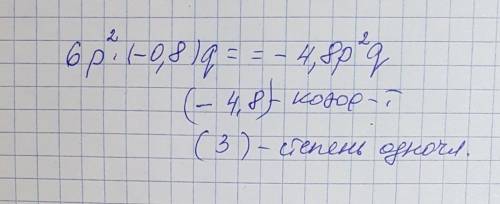 6p²·(-0,8)q = = - 4,8p²q
(- 4,8) - коэф-т
(3) - степень одночл.